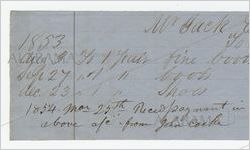 Mr Tuck
1853
To 1 pair fine boots
Sep 27 " 1 " " boots
Dec 23 " 1 " " Shoes
1854 Mar 25th Recd payment in
above a/c from Jno Cocke